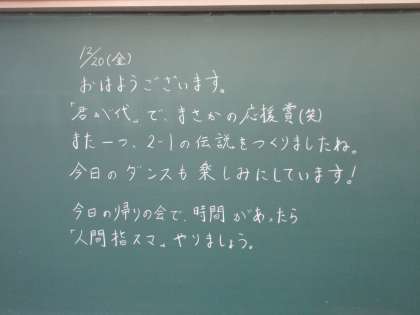 12/20(金)
おはようございます。
「君が代」で、まさかの応援賞(笑)
また一つ、2-1の伝説をつくりましたね。
今日のダンスも楽しみにしています!
今日の帰りの会で、時間があったら
「人間指スマ」やりましょう。